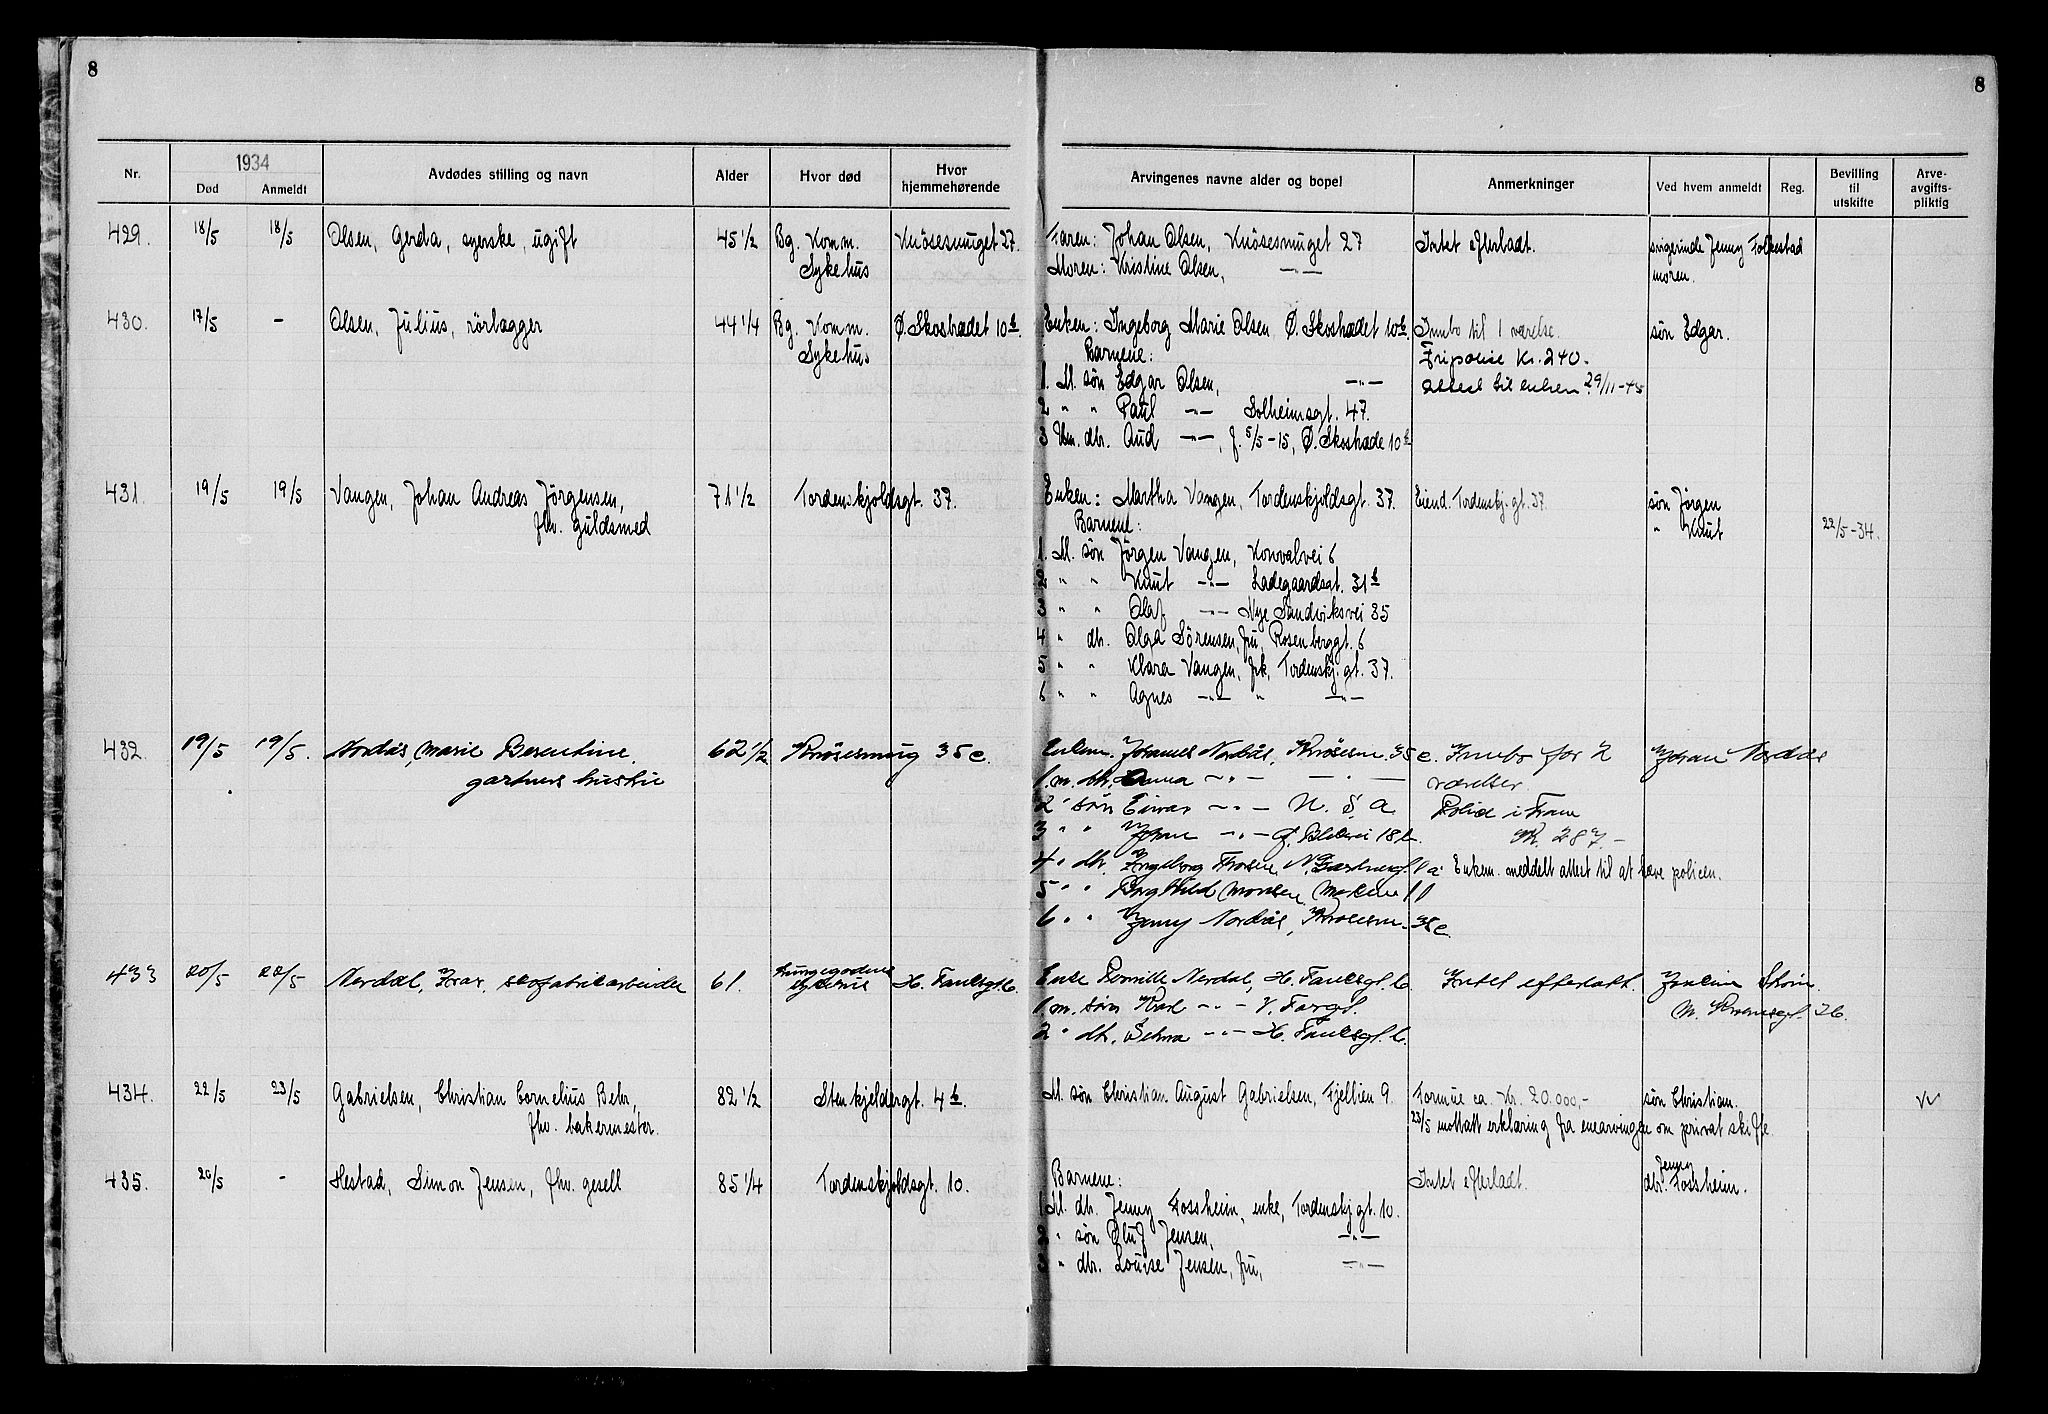 8
8
Nr.
1934
Død
Anmeldt
Avdødes stilling og navn
Alder
Hvor død
Hvor hjemmehørende
Arvingenes navne alder og bopel
Anmerkninger
Ved hvem anmeldt
Reg.
Bevilling til utskifte
Arve-avgifts-pliktig
429. 18/5 18/5 Olsen, Gerda, syerske, ugift 45 1/2 Bg. Komm. Knösesmuget 27. Faren: Johan Olsen, Knösesmuget 27 Intet efterladt. svigerinde Jenny Folkestad
Sykehus Moren: Kristine Olsen, —"— moren.
430. 17/5 - Olsen, Julius, rörlægger 44 1/4 Bg. Komm. Ø. Skostrædet 10b. Enken: Ingeborg Marie Olsen Ø. Skostrædet 10b. Innbo til 1 værelse. søn Edgar.
Sykehus Barnene: Fripolise Kr. 240.-
1. M. søn Edgar Olsen, —"— Attest til enken 29/11-45
2 " " Paul —"— Solheimsgt. 47.
3 Um. dtr. Aud —"—, f. 5/5-15, Ø. Skostræde 10b
431. 19/5 19/5 Vangen, Johan Andreas Jörgensen, 71 1/2 Tordenskjoldsgt. 37. Enken: Martha Vangen, Tordenskjoldsgt. 37. Eiend. Tordenskj.gt. 37. søn Jörgen
fhv. guldsmed Barnene: " Knut 22/5-34.
1. M. søn Jörgen Vangen, Konvalvei 6
2 " " Knut —"— Ladegaardsgt. 31b
3 " " Olaf —"— Nye Sandviksvei 85
4 " dtr. Olga Sörensen, fru, Rosenberggt. 6
5 " " Klara Vangen, frk, Tordenskj.gt. 37.
6 " " Agnes —"— " —"—
432. 19/5 19/5. Nordås, Marie Berentine. 62 1/2 Knøsesmug 35c. Enkem. Johannes Nordås, Knøsesm 35c. Innbo for 2 Johan Nordås
gartners hustru 1. m. dtr. Anna —"— —"— værelser.
2 " søn Einar —"— U. S. A Polise i Fram
3 " " Johan —"— 18 Kr. 287.-
4 " dtr. Ingeborg N. a. Enkem. meddelt attest til at hæve policen.
5 " " Borghild Monsen 11
6 " " Jenny Nordås, Knøsesm. 35c.
433 20/5 22/5 Nerdal, Ivar, skofabrikarbeider 61. sykehus H. Fauksgt. 6. Enke Pernille Nerdal, H. Fauksgt. 6. Intet efterlatt. Strøm.
1. m. søn Karl —"— V. Torgt. 26.
2 " dtr. Selma —"— H. Fauksgt. 6.
434. 22/5 23/5 Gabrielsen, Christian Cornelius Behr, 82 1/2 Stenkjeldergt. 4b. M. søn Christian August Gabrielsen, Fjellien 9. Formue ca. Kr. 20.000,- søn Christian.
fhv. bakermester. 23/5 mottatt erklæring fra enearvingen om privat skifte.
435. 20/5 - Hestad, Simon Jensen, fhv. gesell 85 1/4 Tordenskjoldsgt. 10. Barnene: Intet efterladt. dtr. Jenny Fossheim.
1 M. dtr. Jenny Fossheim, enke, Tordenskj.gt. 10.
2 " søn Oluf Jensen, —"—
3 " dtr. Louise Jensen, fru, —"—